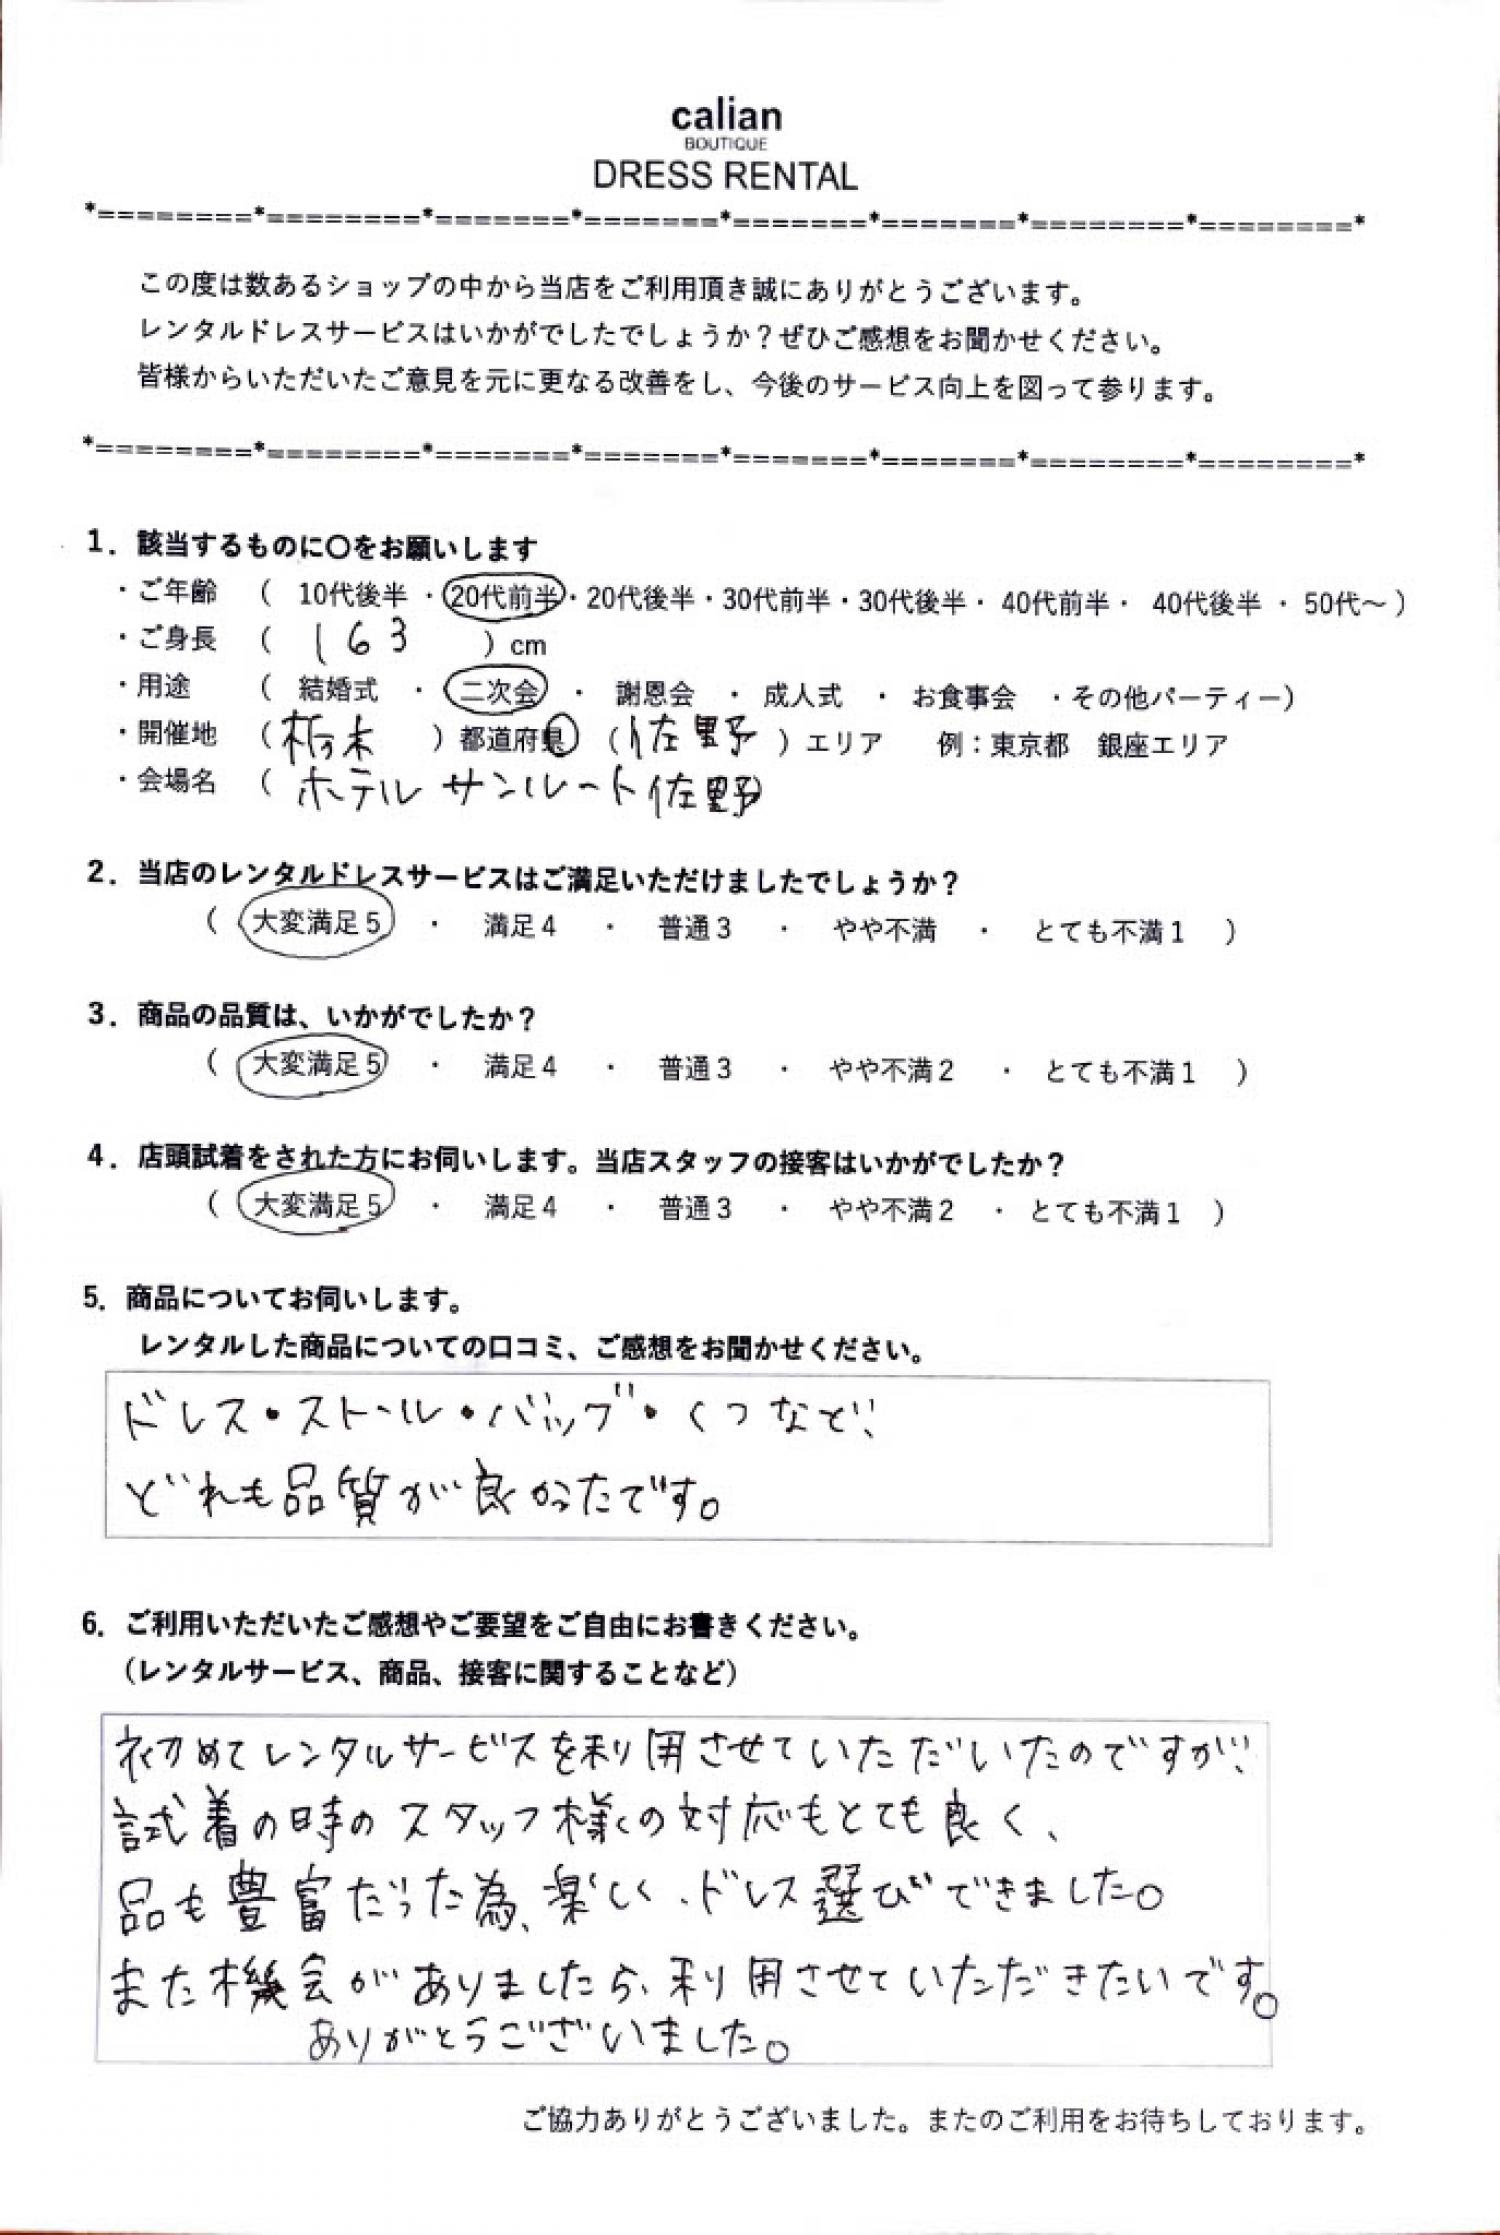 calian
BOUTIQUE
DRESS RENTAL
*========*========*=======*=======*=======*=======*========*========*
この度は数あるショップの中から当店をご利用頂き誠にありがとうございます。
レンタルドレスサービスはいかがでしたでしょうか？ぜひご感想をお聞かせください。
皆様からいただいたご意見を元に更なる改善をし、今後のサービス向上を図って参ります。
*========*========*=======*=======*=======*=======*========*========*
1．該当するものに〇をお願いします
・ご年齢 （ 10代後半 ・20代前半・20代後半・30代前半・30代後半・ 40代前半・ 40代後半 ・ 50代～）
・ご身長 （ 163 ）cm
・用途 （ 結婚式 ・ 二次会 ・ 謝恩会 ・ 成人式 ・ お食事会 ・その他パーティー）
・開催地 （栃木 ）都道府県 （佐野 ）エリア 例：東京都 銀座エリア
・会場名 （ ホテル サンルート佐野
2．当店のレンタルドレスサービスはご満足いただけましたでしょうか？
（ 大変満足5 ・ 満足4 ・ 普通3 ・ やや不満 ・ とても不満1 ）
3．商品の品質は、いかがでしたか？
（ 大変満足5 ・ 満足4 ・ 普通3 ・ やや不満2 ・ とても不満1 ）
4．店頭試着をされた方にお伺いします。当店スタッフの接客はいかがでしたか？
（ 大変満足5 ・ 満足4 ・ 普通3 ・ やや不満2 ・ とても不満1 ）
5．商品についてお伺いします。
レンタルした商品についての口コミ、ご感想をお聞かせください。
ドレス・ストール・バッグ・くつなど、
どれも品質が良かったです。
6．ご利用いただいたご感想やご要望をご自由にお書きください。
（レンタルサービス、商品、接客に関することなど）
初めてレンタルサービスを利用させていただいたのですが、
試着の時のスタッフ様の対応もとても良く、
品も豊富だった為、楽しく、ドレス選びできました。
また機会がありましたら、利用させていただきたいです。
ありがとうございました。
ご協力ありがとうございました。またのご利用をお待ちしております。